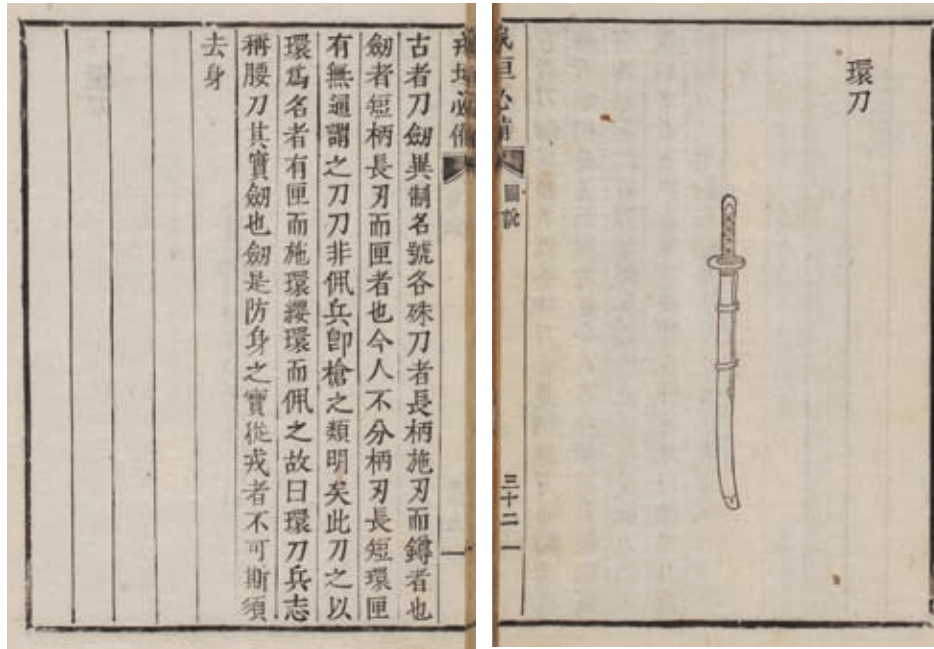 環刀
戎垣必備
圖說
三十二
戎垣必備
古者刀劒異制名號各殊刀者長柄施刃而鐏者也
劒者短柄長刃而匣者也今人不分柄刃長短環匣
有無通謂之刀刀非佩兵卽槍之類明矣此刀之以
環爲名者有匣而施環纓環而佩之故曰環刀兵志
稱腰刀其實劒也劒是防身之寶從戎者不可斯須
去身